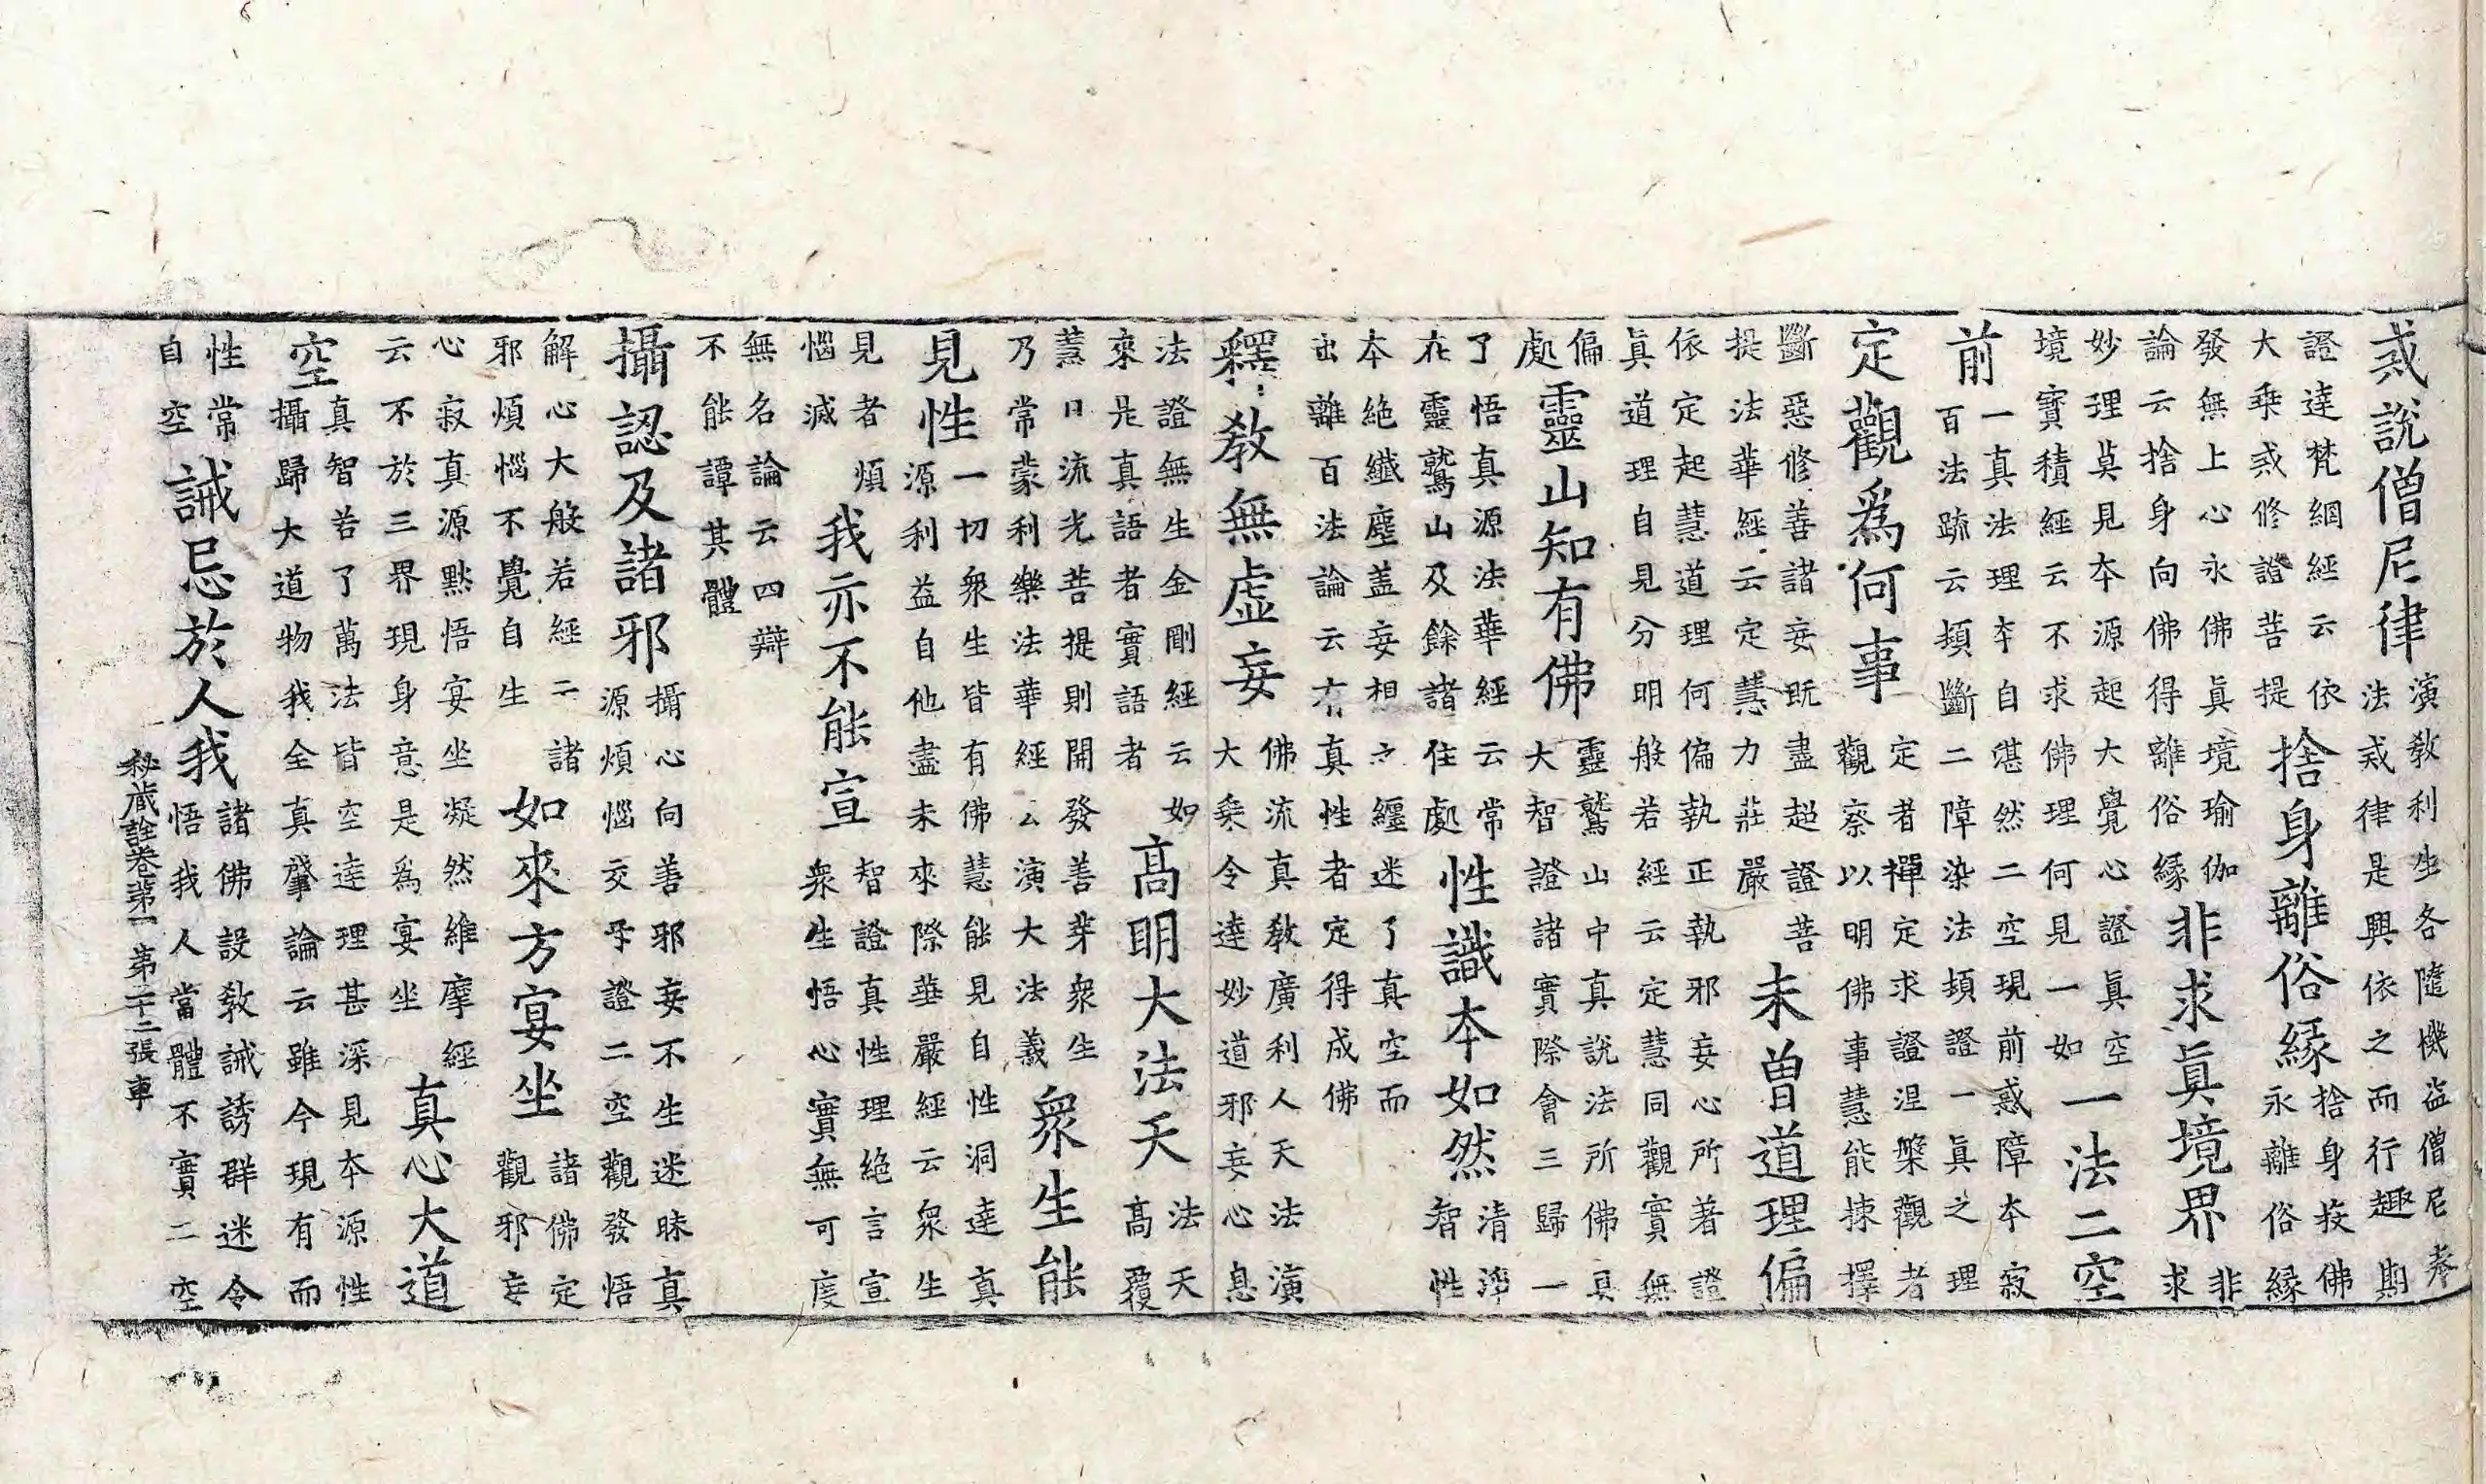 戒說僧尼律
演教利生各隨機益僧尼恭
法戒律是興依之而行趣期
證達梵網經云依
大乗戒修證菩提
捨身離俗緣
捨身投佛
永離俗緣
發無上心永佛眞境瑜伽
論云捨身向佛得離俗緣
非求眞境界
非
求
妙理莫見本源起大覺心證眞空
境寶積經云不求佛理何見一如
一法二空
前
一真法理本自湛然二空現前惑障本寂
百法䟽云頓斷二障染法頓證一眞之理
定觀爲何事
定者禪定求證涅槃觀者
觀察以明佛事慧能揀擇
斷惡修善諸妄既盡超證菩
提法華經云定慧力莊嚴
未曾道理偏
依定起慧道理何偏執正執邪妄心所著證
眞道理自見分明般若經云定慧同觀實無
偏
處
靈山知有佛
靈鷲山中真說法所佛具
大智證諸實際會三歸一
了悟真源法華經云常
在靈鷲山及餘諸住處
性識本如然
清淨
智性
本絕纖塵盖妄相之纒迷了真空而
出離百法論云有真性者定得成佛
釋教無虚妄
佛流真教廣利人天法演
大乗令達妙道邪妄心息
法證無生金剛經云如
來是真語者實語者
高明大法天
法天
高覆
蓋日流光菩提則開發善芽衆生
乃常蒙利樂法華經云演大法義
衆生能
見性
一切衆生皆有佛慧能見自性洞達真
源利益自他盡未來際華嚴經云衆生
見者煩
惱滅
我亦不能宣
智證真性理絕言宣
衆生悟心實無可度
無名論云四辯
不能譚其體
攝認及諸邪
攝心向善邪妄不生迷昧真
源煩惱交乎證二空觀發悟
解心大般若經云諸
邪煩惱不覺自生
如來方宴坐
諸佛定
觀邪妄
心寂真源㸃悟宴坐凝然維摩經
云不於三界現身意是爲宴坐
真心大道
空
真智若了萬法皆空達理甚深見本源性
攝歸大道物我全真肇論云雖今現有而
性常
自空
誡忌於人我
諸佛設教誡誘群迷令
悟我人當體不實二空
秘蔵詮卷第一 第二十二張 車